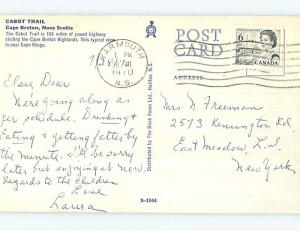 CABOT TRAIL
Cape Breton, Nova Scotia
The Cabot Trail is 184 miles of paved highway
circling the Cape Breton Highlands. This typical view
is near Cape Rouge.
Elsie, Dear
Were going along as
per schedule. Drinking &
Eating & getting fatter by
the minute. I'll be sorry
later but enjoying it now.
Regards to the Children
Love
Laura
Distributed by The Book Room Ltd., Halifax, N.S.
S-1544
YARMOUTH
PM
1970
N.S.
POST
CARD
ADDRESS
6
CANADA
Mrs N. Freeman
2573 Kennington Rd.
East Meadow, L.I.
New York